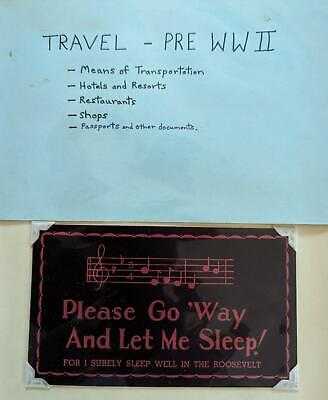 TRAVEL - PRE WW II
- Means of Transportation
- Hotels and Resorts
- Restaurants
- Shops
- Passports and other documents.
3
4
Please Go 'Way
And Let Me Sleep!
FOR I SURELY SLEEP WELL IN THE ROOSEVELT